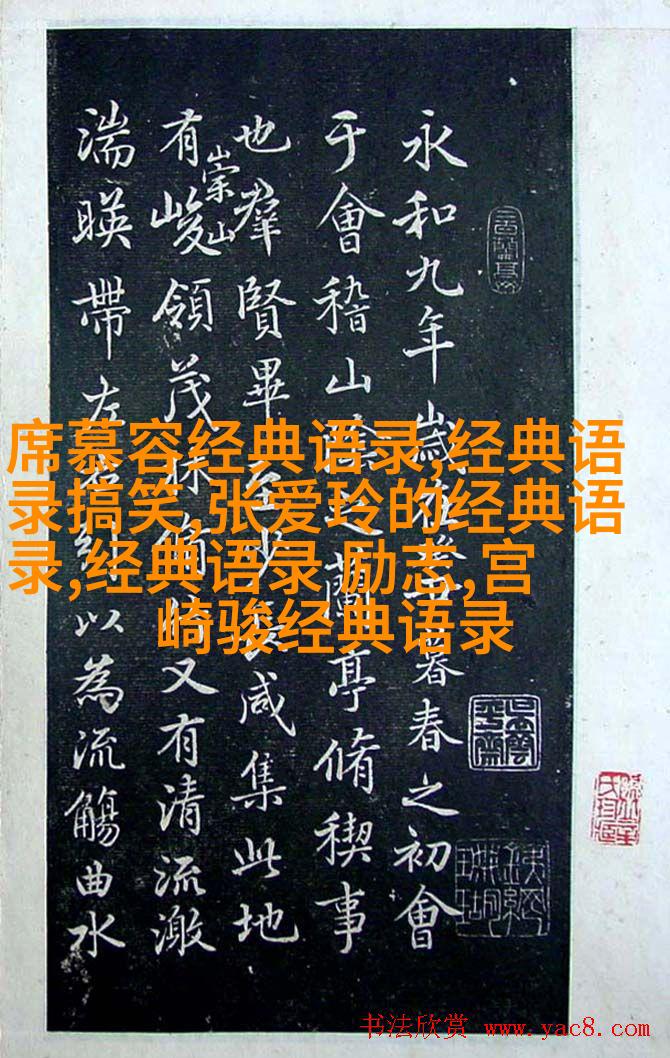 永和九年歲暮春之初會
于會稽山之蘭亭脩稧事
也羣賢畢至少咸集此地
有崇山峻領茂林脩又有清流激
湍暎帶左右以為流觴曲水
席慕容经典语录,经典语
录搞笑,张爱玲的经典语
录,经典语录 励志,宫
崎骏经典语录
书法欣赏 www.yac8.com